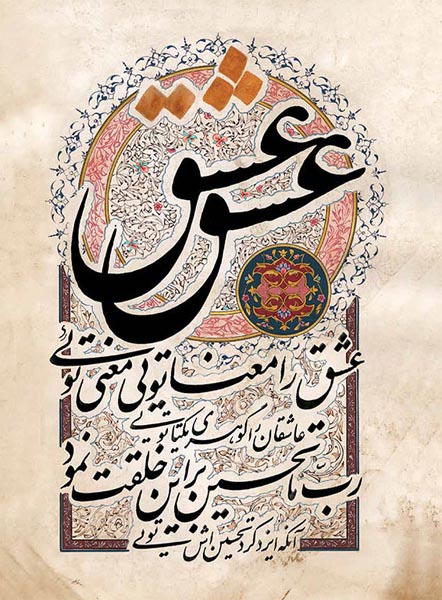 عشق
عشق
عشق را معنا تویی معنی تویی
عاشقان را گوهری یکتا تویی
رب ما تحسین براین خلقت نمود
آنکه ایزد کرد تحسین اش تویی